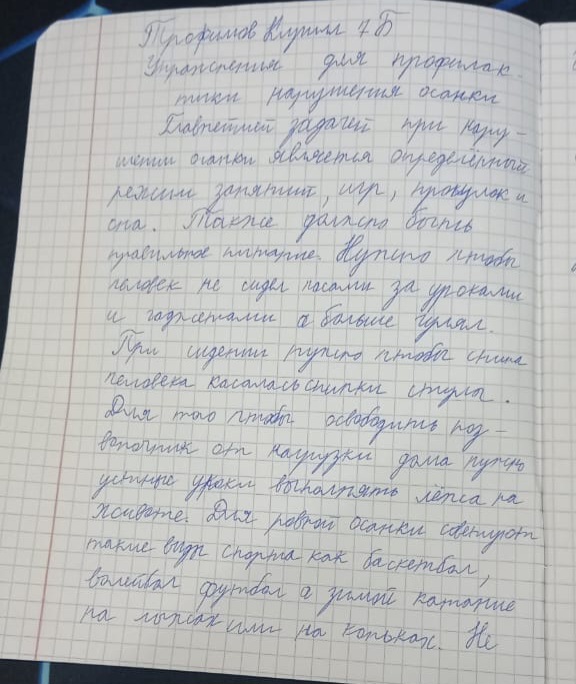 Трофимов Кирилл 7Б
Упражнения для профилак-
тики нарушения осанки
Главнейшей задачей при нару-
шении осанки является определённый
режим занятий, игр, прогулок и
сна. Также должно быть
правильное питание. Нужно чтобы
человек не сидел часами за уроками
и гаджетами а больше гулял.
При сидении нужно чтобы спина
человека касалась спинки стулы.
Для того чтобы освободить поз-
воночник от нагрузки дома нужно
устные уроки выполнять лёжа на
животе. Для ровной осанки советуют
такие виды спорта как баскетбол,
волейбол футбол а зимой катание
на лыжах или на коньках. Не